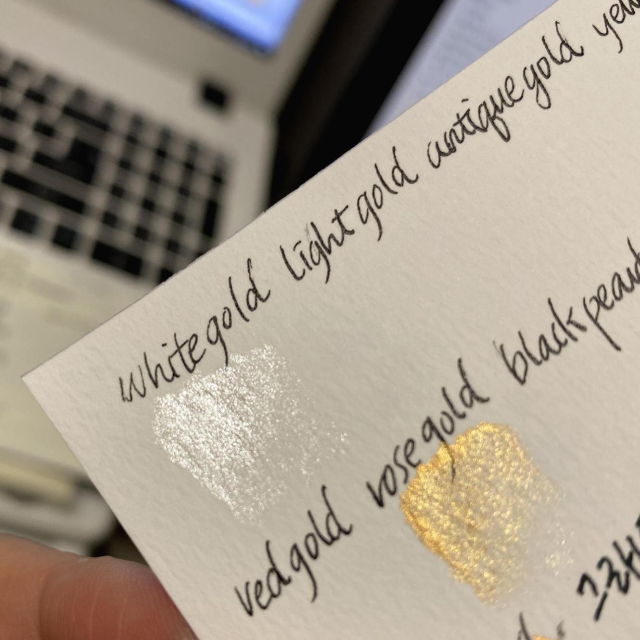 white gold light gold antique gold
red gold rose gold black pearl